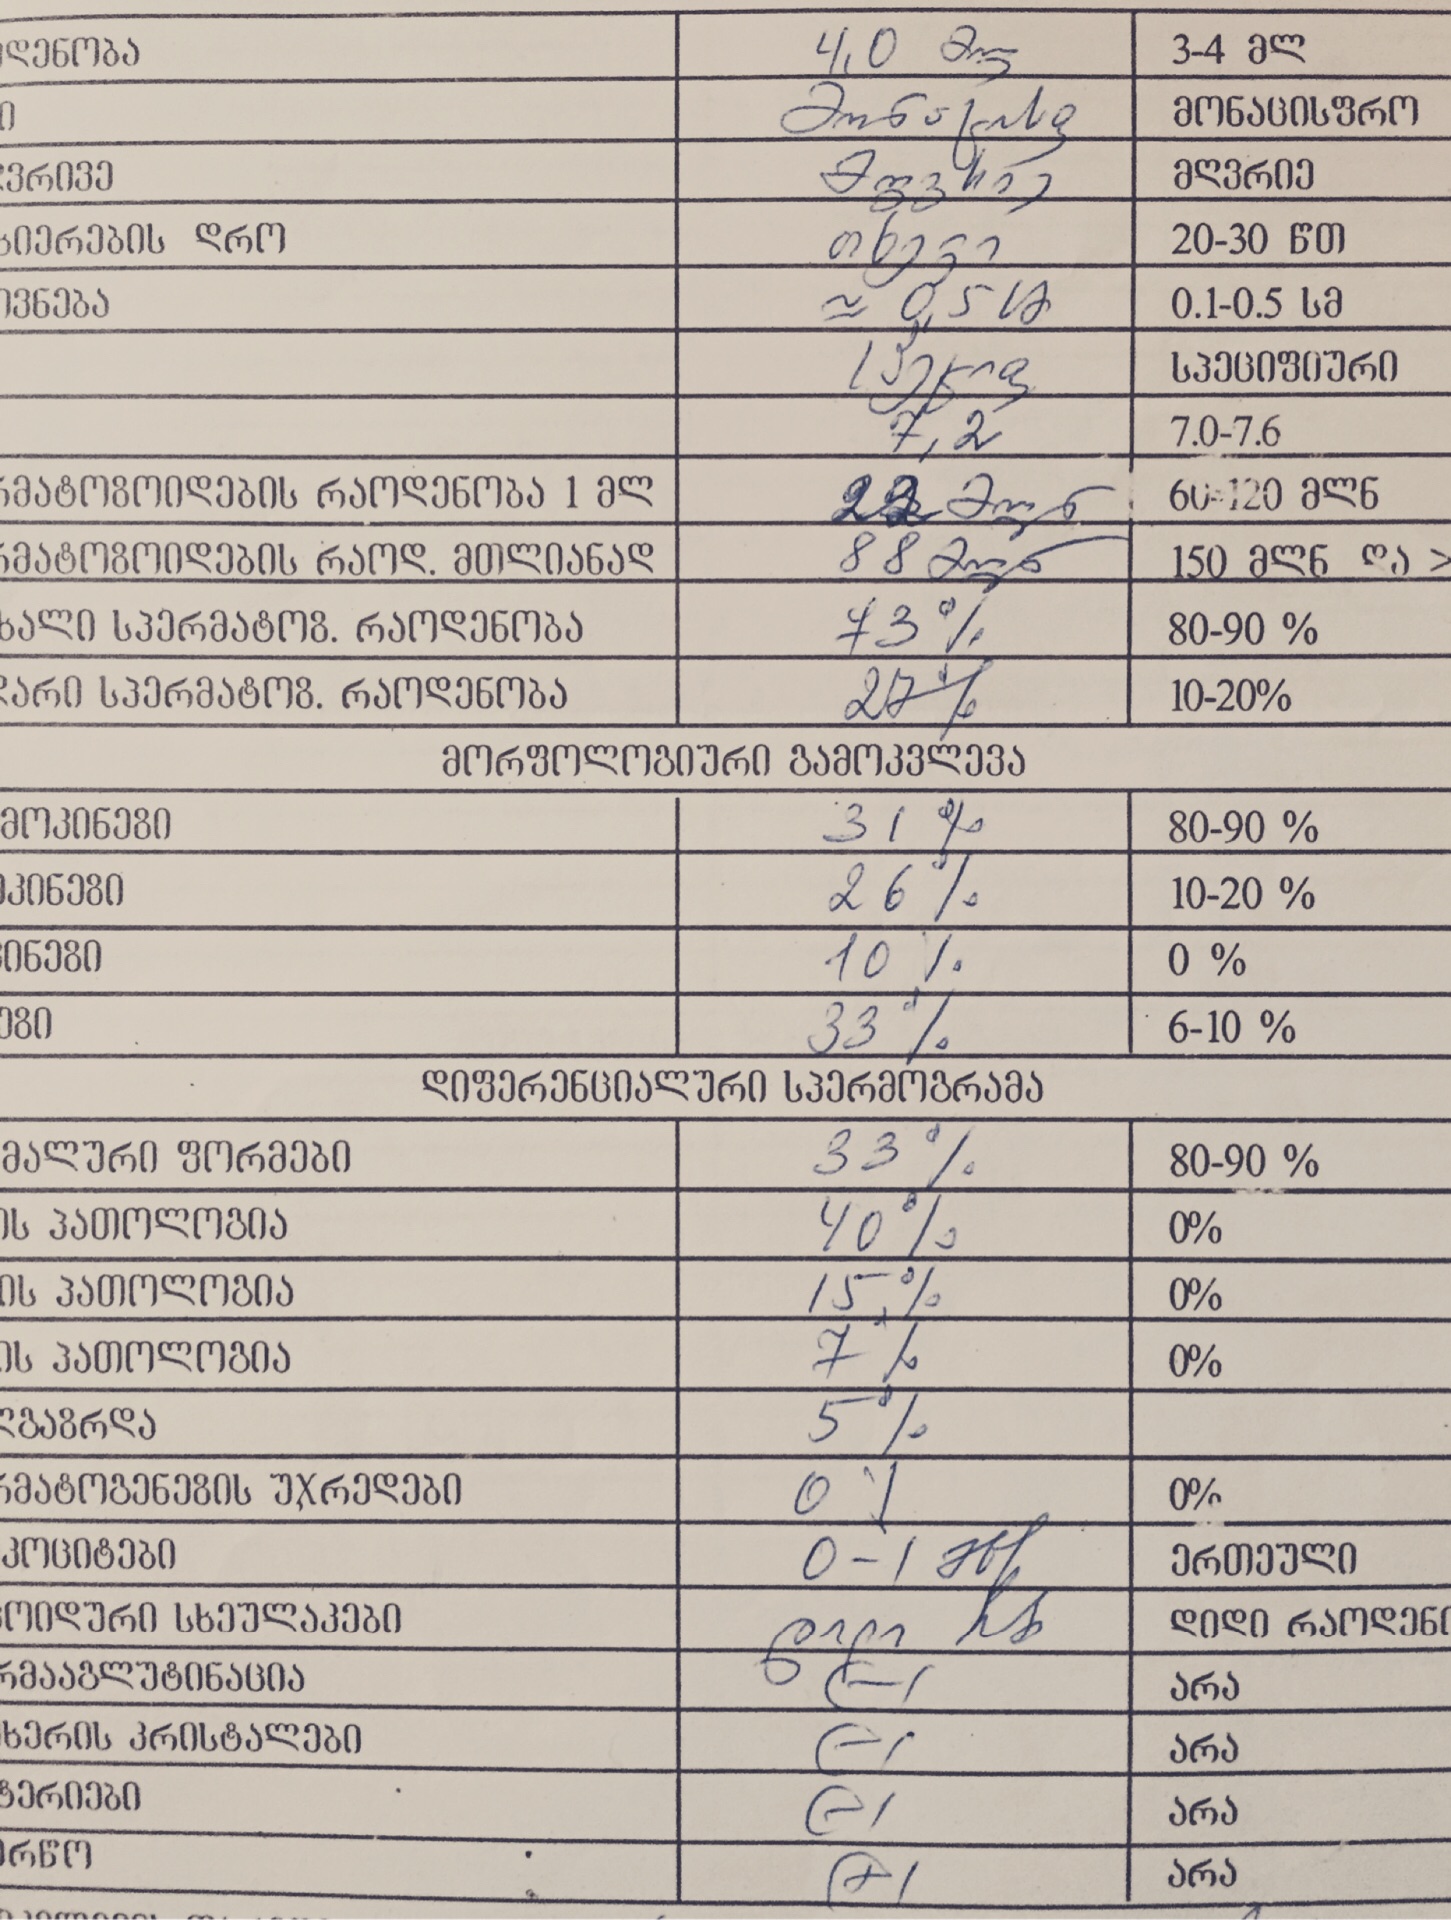 ოდენობა 4,0 მლ 3-4 მლ
ი მონაცისფ მონაცისფრო
ღვრივე მღვრიე მღვრიე
ხიერების დრო თხევი 20-30 წთ
ოვნება ≈ 0,5 სმ 0.1-0.5 სმ
სპეციფ სპეციფიური
7,2 7.0-7.6
რმატოზოიდების რაოდენობა 1 მლ 22 მლნ 60-120 მლნ
რმატოზოიდების რაოდ. მთლიანად 88 მლნ 150 მლნ და >
ხალი სპერმატოზ. რაოდენობა 73% 80-90 %
დარი სპერმატოზ. რაოდენობა 27% 10-20%
მორფოლოგიური გამოკვლევა
მოკინეზი 31% 80-90 %
კინეზი 26% 10-20 %
კინეზი 10% 0 %
ეზი 33% 6-10 %
დიფერენციალური სპერმოგრამა
მალური ფორმები 33% 80-90 %
ის პათოლოგია 40% 0%
ის პათოლოგია 15% 0%
ის პათოლოგია 7% 0%
ლგაზრდა 5%
რმატოგენეზის უჯრედები 0% 0%
კოციტები 0-1 მხ/ ერთეული
ოიდური სხეულაკები დიდი რაოდენ
რმააგლუტინაცია (-) არა
ხერის კრისტალები (-) არა
ტერიები (-) არა
ორწო (+) არა